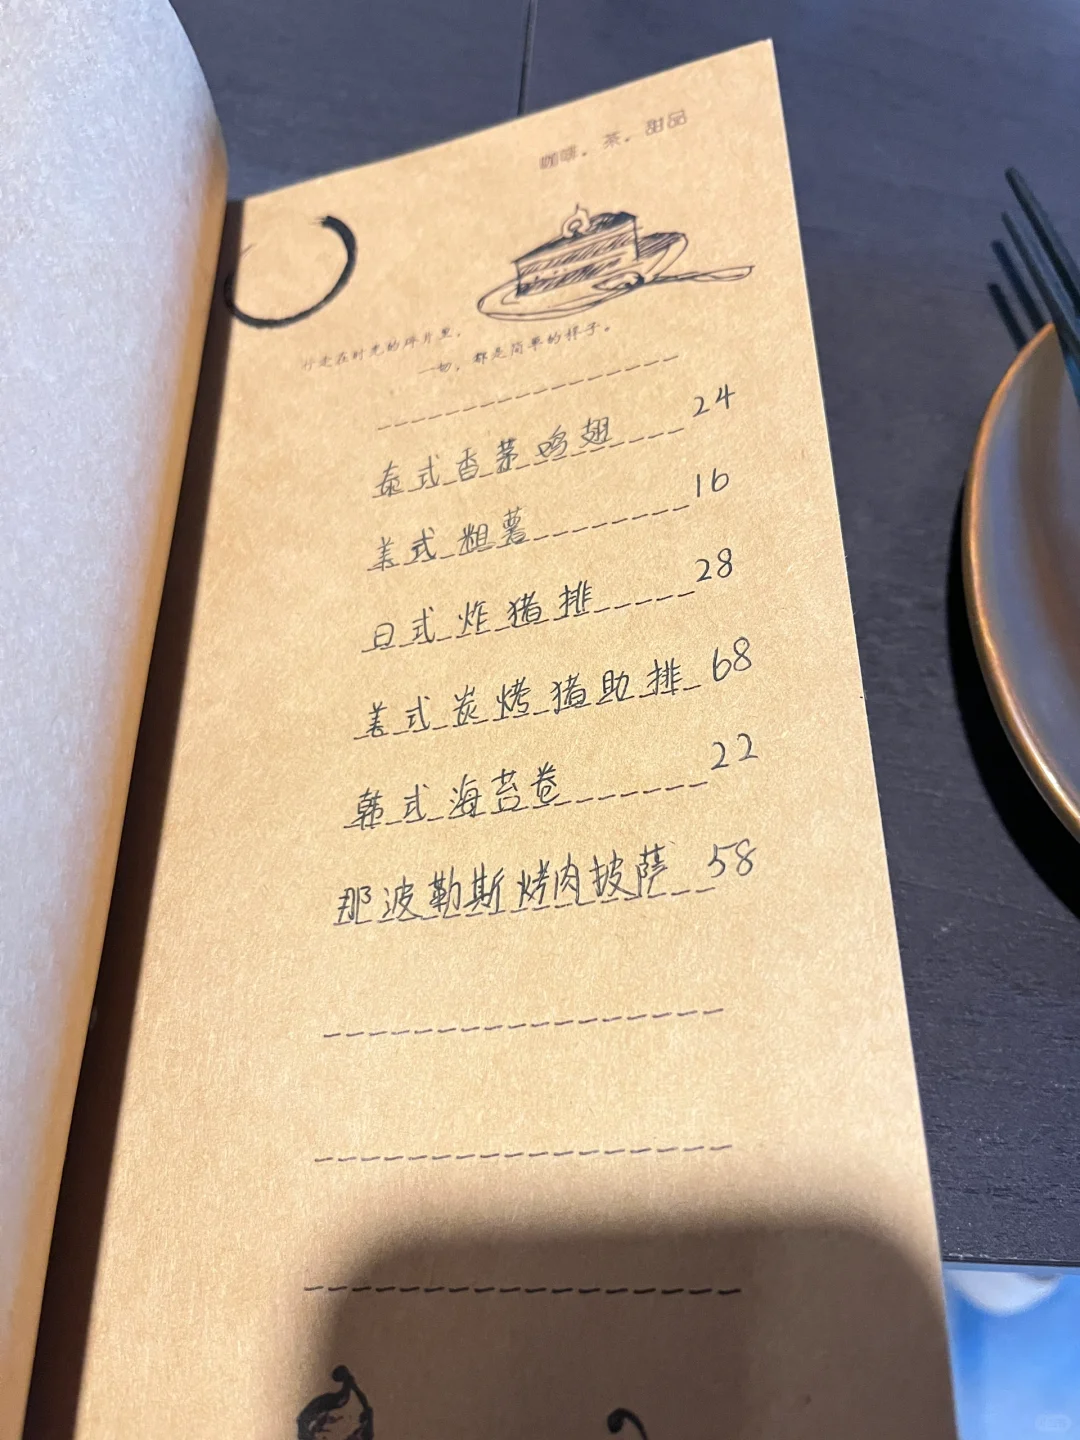 咖啡．茶．甜品
行走在时光的碎片里，
一切，都是简单的样子。
泰式香茅鸡翅 24
美式粗薯 16
日式炸猪排 28
美式炭烤猪助排 68
韩式海苔卷 22
那波勒斯烤肉披萨 58